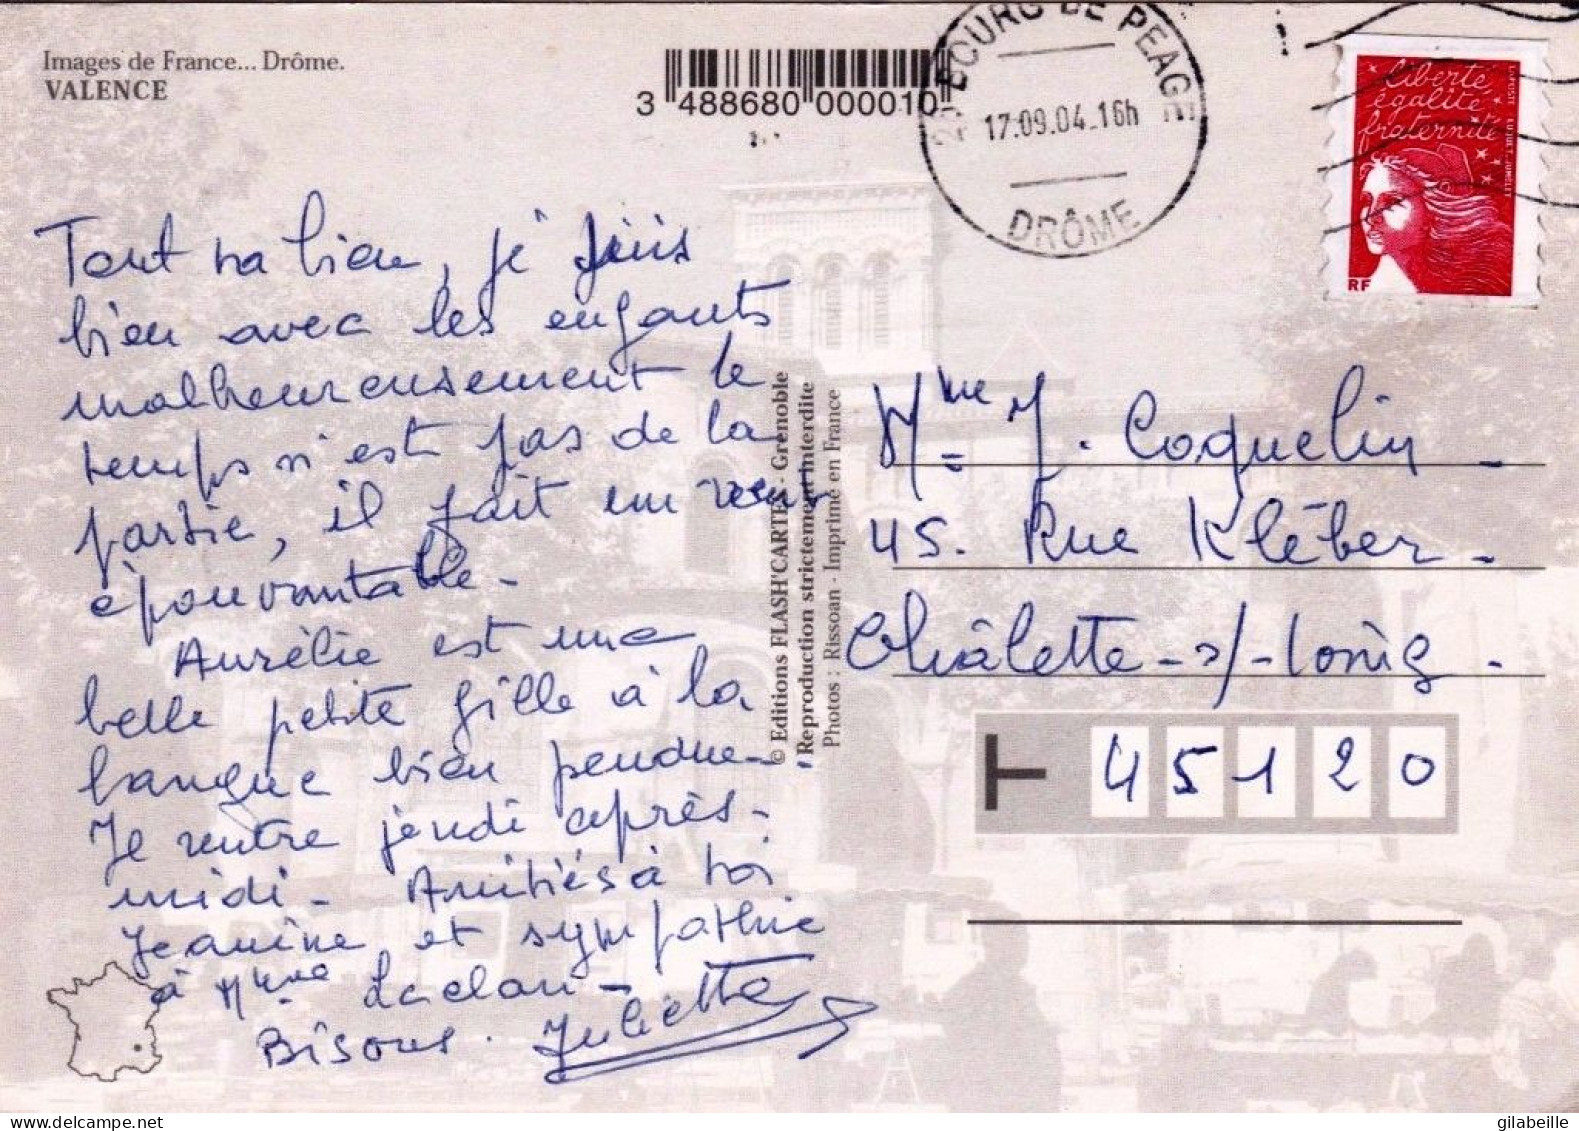 Images de France... Drôme.
VALENCE
3 488680 000010
26 BOURG DE PEAGE
17.09.04_16h
DRÔME
liberté
égalité
fraternité
LA POSTE LUQUET-JUMELET
RF
Tout va bien, je suis
bien avec les enfants
malheureusement le
temps n'est pas de la
partie, il fait un vent
épouvantable -
Aurélie est une
belle petite fille à la
langue bien pendue -
Je rentre jeudi après-
midi - Amitiés à toi
Jeanine et sympathie
à Mme Leclan -
Bisous. Juliette
© Editions FLASH'CARTE - Grenoble
Reproduction strictement interdite
Photos : Rissoan - Imprimé en France
Mme J. Coquelin -
45. Rue Kléber -
Châlette-s/-Loing -
45120
gilabeille